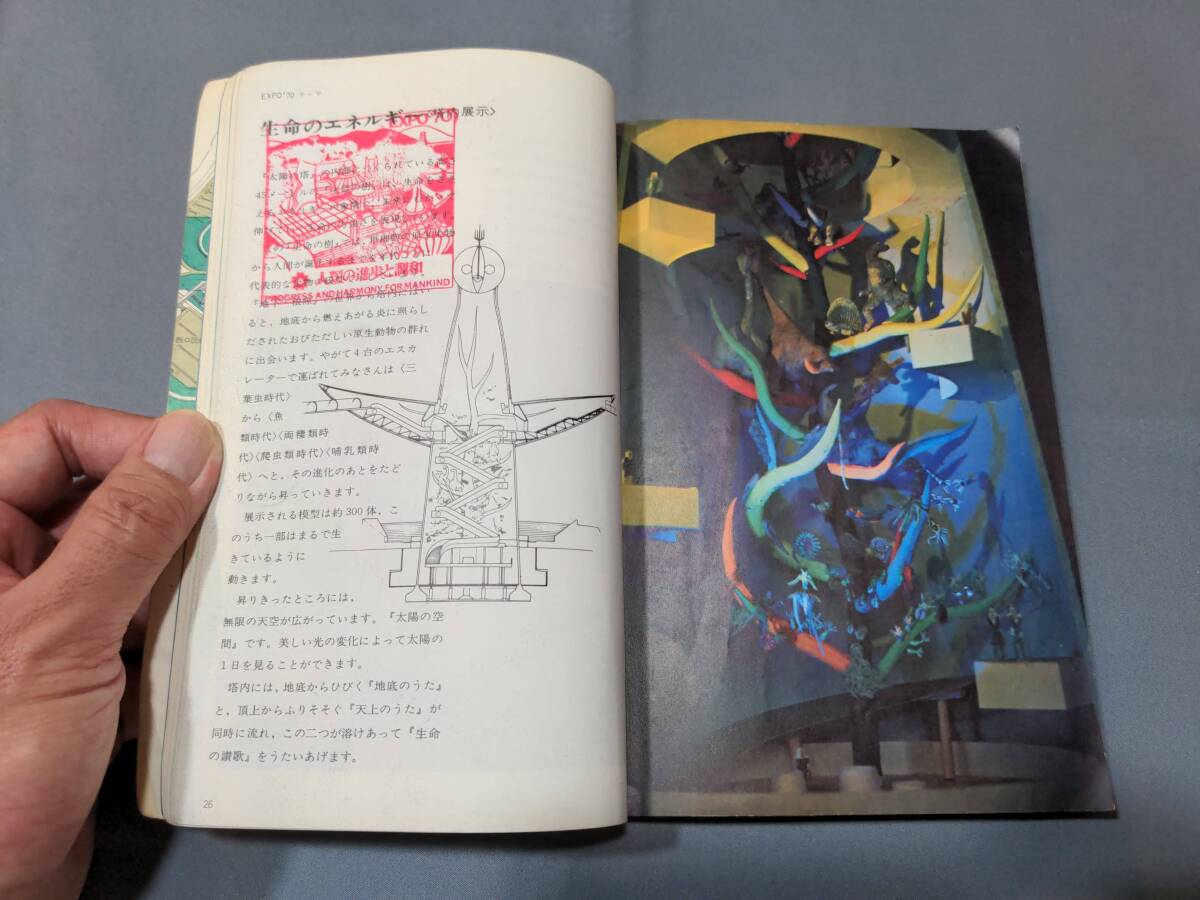 EXPO'70 テーマ
生命のエネルギー 塔内展示〉
EXPO'70
『太陽の塔』の られている高さ
45メートルの は、生命
伸
『生命の樹』では、
から人間が誕生するまでを年代
代表的な
人類の進歩と調和
PROGRESS AND HARMONY FOR MANKIND
から塔内にはい
ると、地底から燃えあがる炎に照らし
だされたおびただしい原生動物の群れ
に出会います。やがて4台のエスカ
レーターで運ばれてみなさんは〈三
葉虫時代〉
から〈魚
類時代〉〈両棲類時
代〉〈爬虫類時代〉〈哺乳類時
代〉へと、その進化のあとをたど
りながら昇っていきます。
展示される模型は約300体，こ
のうち一部はまるで生
きているように
動きます。
昇りきったところには，
無限の天空が広がっています。『太陽の空
間』です。美しい光の変化によって太陽の
1日を見ることができます。
塔内には，地底からひびく『地底のうた』
と，頂上からふりそそぐ『天上のうた』が
同時に流れ，この二つが溶けあって『生命
の讃歌』をうたいあげます。
26